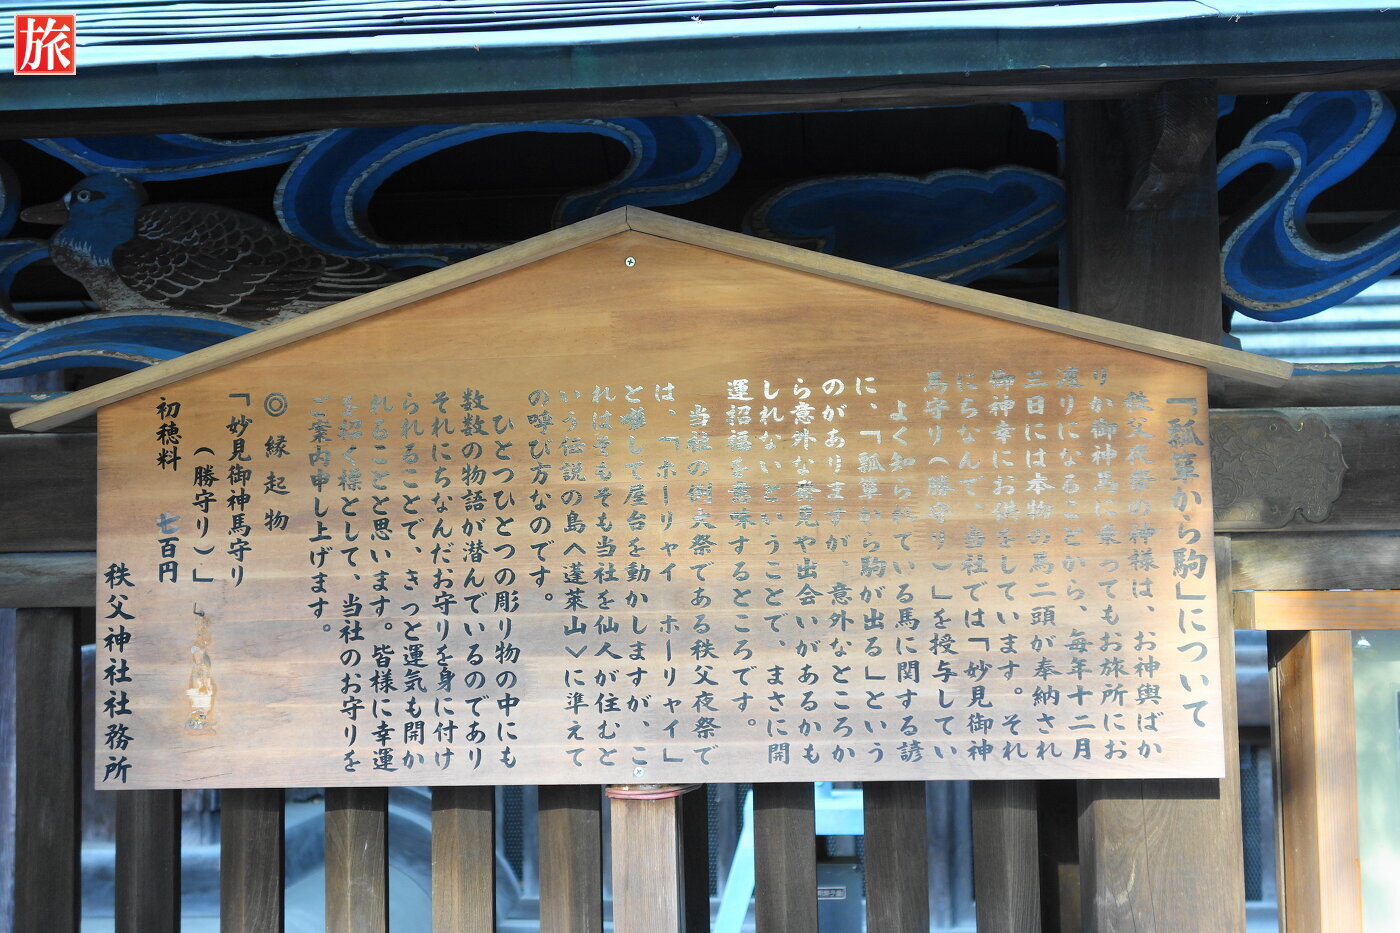 旅
「瓢箪から駒」について
秩父夜祭の神様は、お神輿ばか
りか御神馬に乗ってもお旅所にお
渡りになることから、毎年十二月
三日には本物の馬二頭が奉納され
御神幸にお供をしています。それ
にちなんで、当社では「妙見御神
馬守り（勝守り）」を授与してい
よく知られている馬に関する諺
に、「瓢箪から駒が出る」という
のがありますが、意外なところか
ら意外な発見や出会いがあるかも
しれないということで、まさに開
運招福を意味するところです。
当社の例大祭である秩父夜祭で
は、「ホーリャイ ホーリャイ」
と囃して屋台を動かしますが、こ
れはそもそも当社を仙人が住むと
いう伝説の島へ蓬莱山〉に準えて
の呼び方なのです。
ひとつひとつの彫り物の中にも
数数の物語が潜んでいるのであり
それにちなんだお守りを身に付け
られることで、きっと運気も開か
れることと思います。皆様に幸運
を招く標として、当社のお守りを
ご案内申し上げます。
◎ 縁起物
「妙見御神馬守り
（勝守り）」
初穂料 七百円
秩父神社社務所